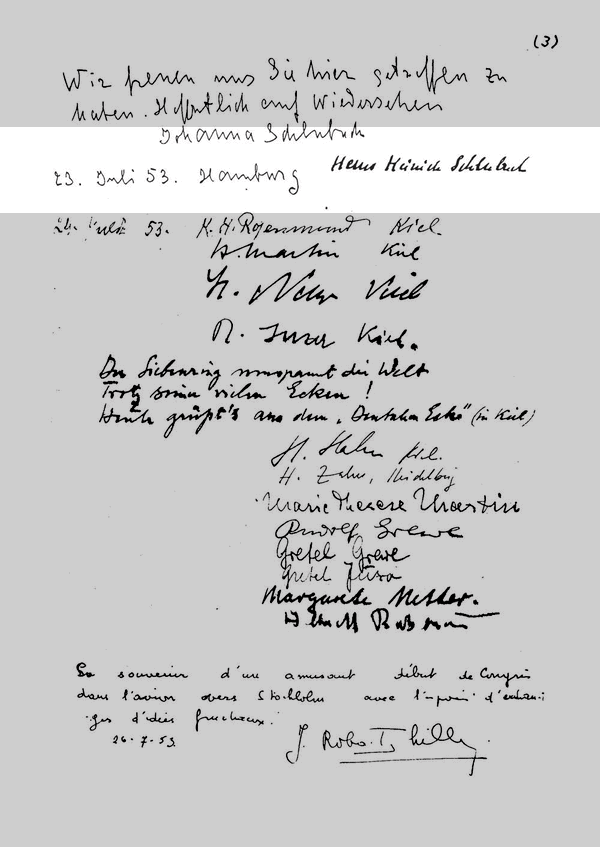 (3)
Wir freuen uns Sie hier getroffen zu
haben. Hoffentlich auf Wiedersehen
Johanna Schlubach
Hans Heinrich Schlubach
23. Juli 53. Hamburg
24. Juli 53. K. H. Kiel.
H. Martin Kiel
Kiel
Kiel.
Der Siebenring umspannt die Welt
Trotz seiner vielen Ecken!
Heute grüßt's aus dem "Deutschen Eck" (in Kiel)
H. Hahn Kiel.
H. Zahn, Heidelberg
Marie Therese Martin
Rudolf Grewe
Gretel Grewe
Gretel
Margarete Netter.
En souvenir d'un amusant début de Congrès
dans l'avion vers Stockholm avec l'espoir d'échan-
ges d'idées fructueux.
26-7-53
J.